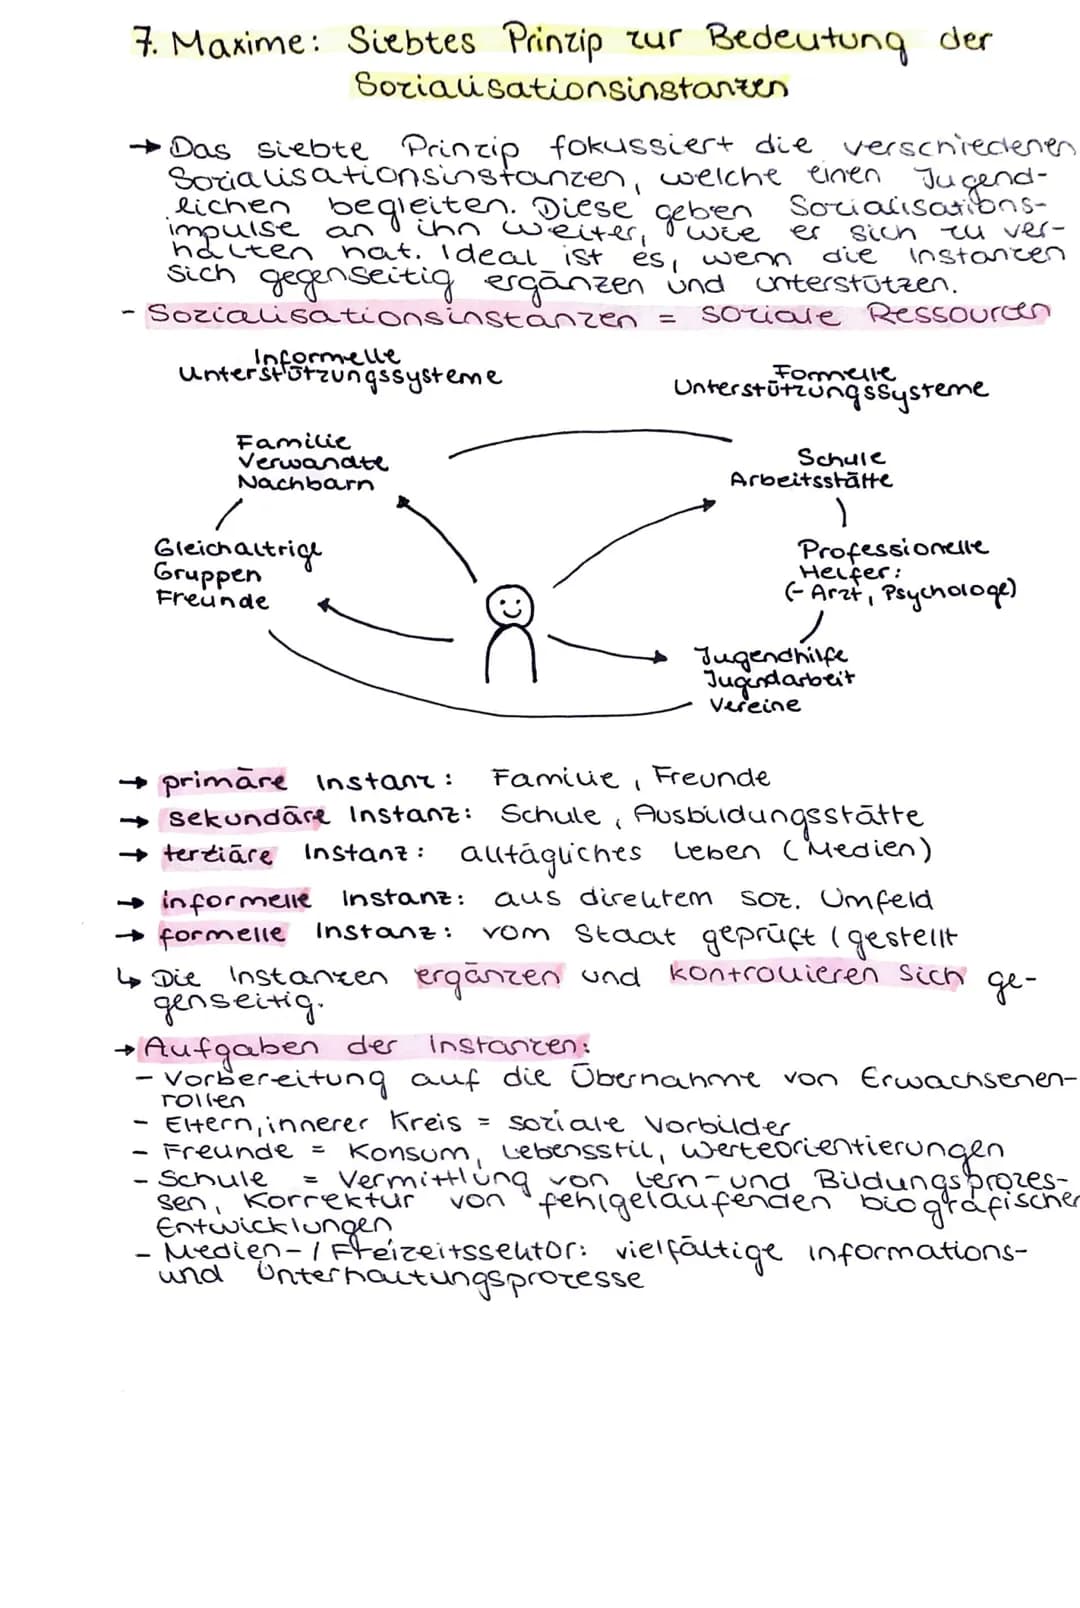 7. Maxime: Siebtes Prinzip zur Bedeutung der
Sozialisationsinstanzen
→ Das siebte Prinzip fokussiert die verschiedenen
Sozialisationsinstanzen, welche einen Jugend-
lichen begleiten. Diese geben Sozialisations-
impulse an ihn weiter, wie er sich zu ver-
halten hat. Ideal ist es, wenn die Instanzen
sich gegenseitig ergänzen und unterstützen.
- Sozialisationsinstanzen = soziale Ressourcen
Informelle
Unterstützungssysteme
Formelle
Unterstützungssysteme
Familie
Verwandte
Nachbarn
Schule
Arbeitsstätte
Gleichaltrige
Gruppen
Freunde
Professionelle
Helfer:
(- Arzt, Psychologe)
Jugendhilfe
Jugendarbeit
Vereine
→ primäre Instanz: Familie, Freunde
→ sekundäre Instanz: Schule, Ausbildungsstätte
→ tertiäre Instanz: alltägliches Leben (Medien)
→ informelle Instanz: aus direktem soz. Umfeld
→ formelle Instanz: vom Staat geprüft / gestellt
↳ Die Instanzen ergänzen und kontrollieren sich ge-
genseitig.
→ Aufgaben der Instanzen:
- Vorbereitung auf die Übernahme von Erwachsenen-
rollen
- Eltern, innerer Kreis = soziale Vorbilder
- Freunde = Konsum, Lebensstil, Werteorientierungen
- Schule = Vermittlung von Lern- und Bildungsprozes-
sen, Korrektur von fehlgelaufenden biografischer
Entwicklungen
- Medien- / Freizeitssektor: vielfältige Informations-
und Unterhaltungsprozesse